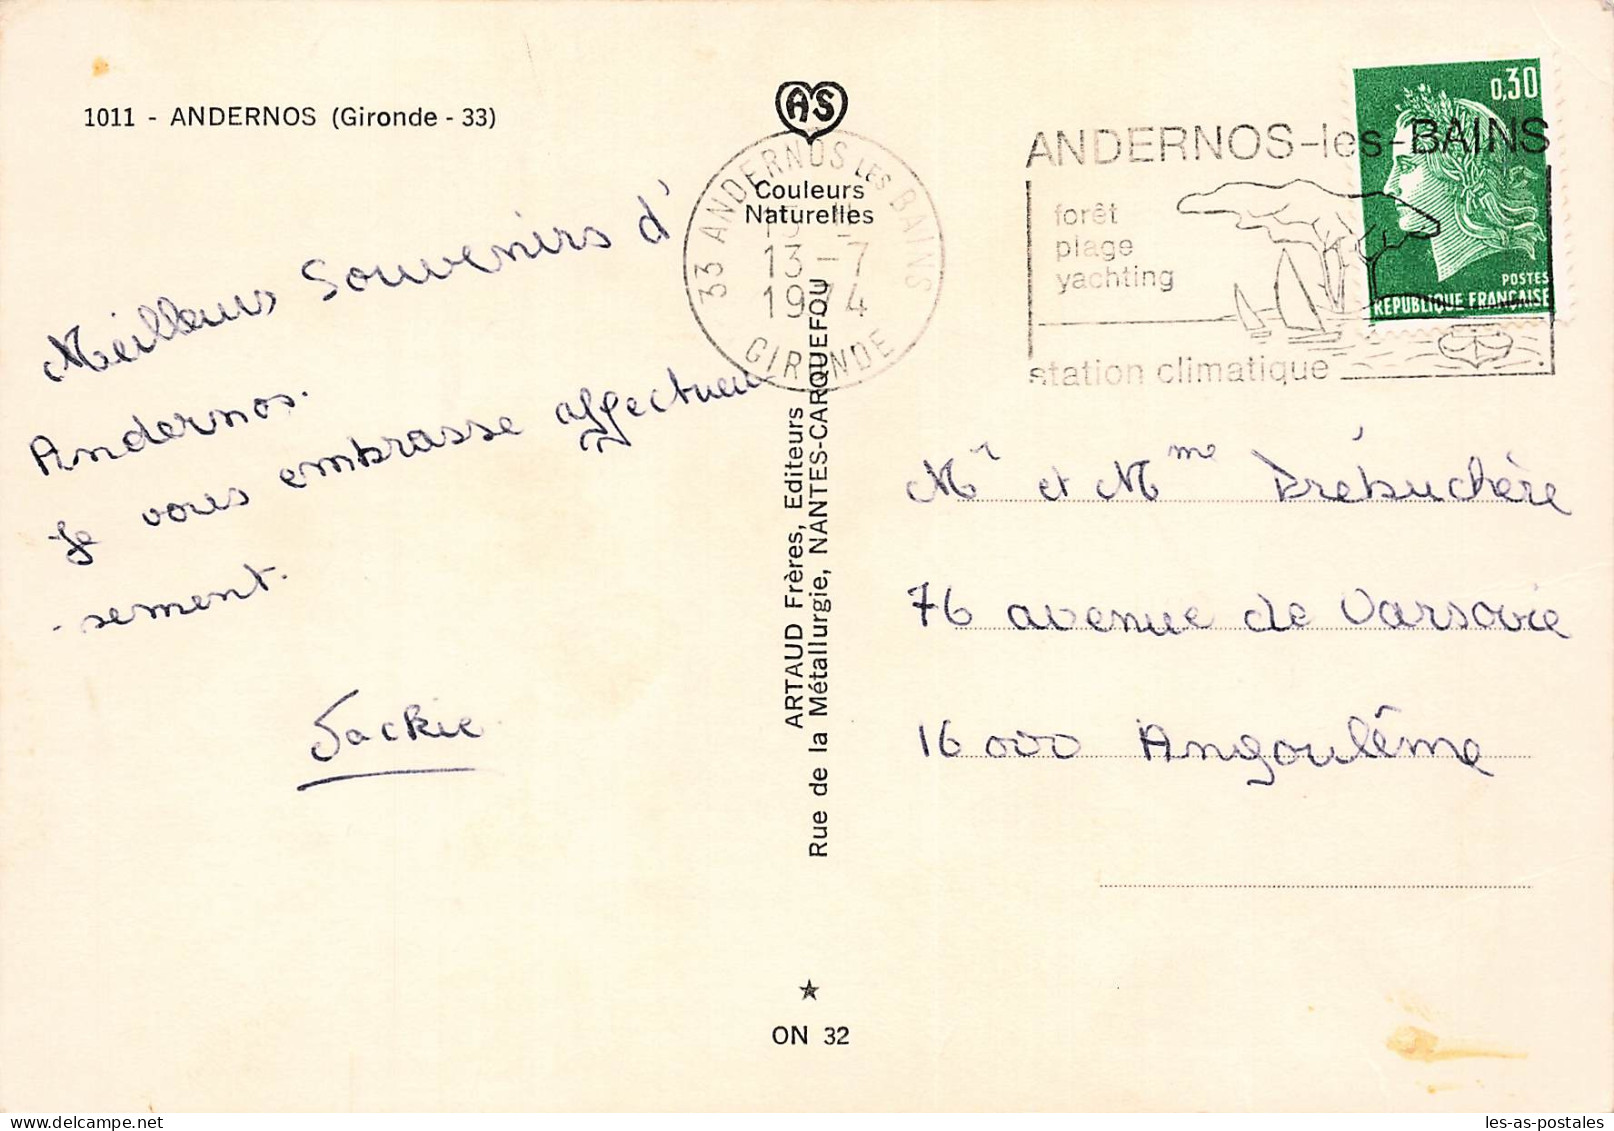 1011 - ANDERNOS (Gironde - 33)
Meilleurs Souvenirs d'
Andernos.
Je vous embrasse affectueu
-sement.
Jackie
AS
Couleurs
Naturelles
33 ANDERNOS LES BAINS
13-7
1974
GIRONDE
ARTAUD Frères, Editeurs
Rue de la Métallurgie, NANTES-CARQUEFOU
★
ON 32
ANDERNOS-les-BAINS
forêt
plage
yachting
station climatique
0,30
POSTES
REPUBLIQUE FRANÇAISE
Mr et Mme Drébuchère
76 avenue de Varsovie
16000 Angoulême
les-as-postales